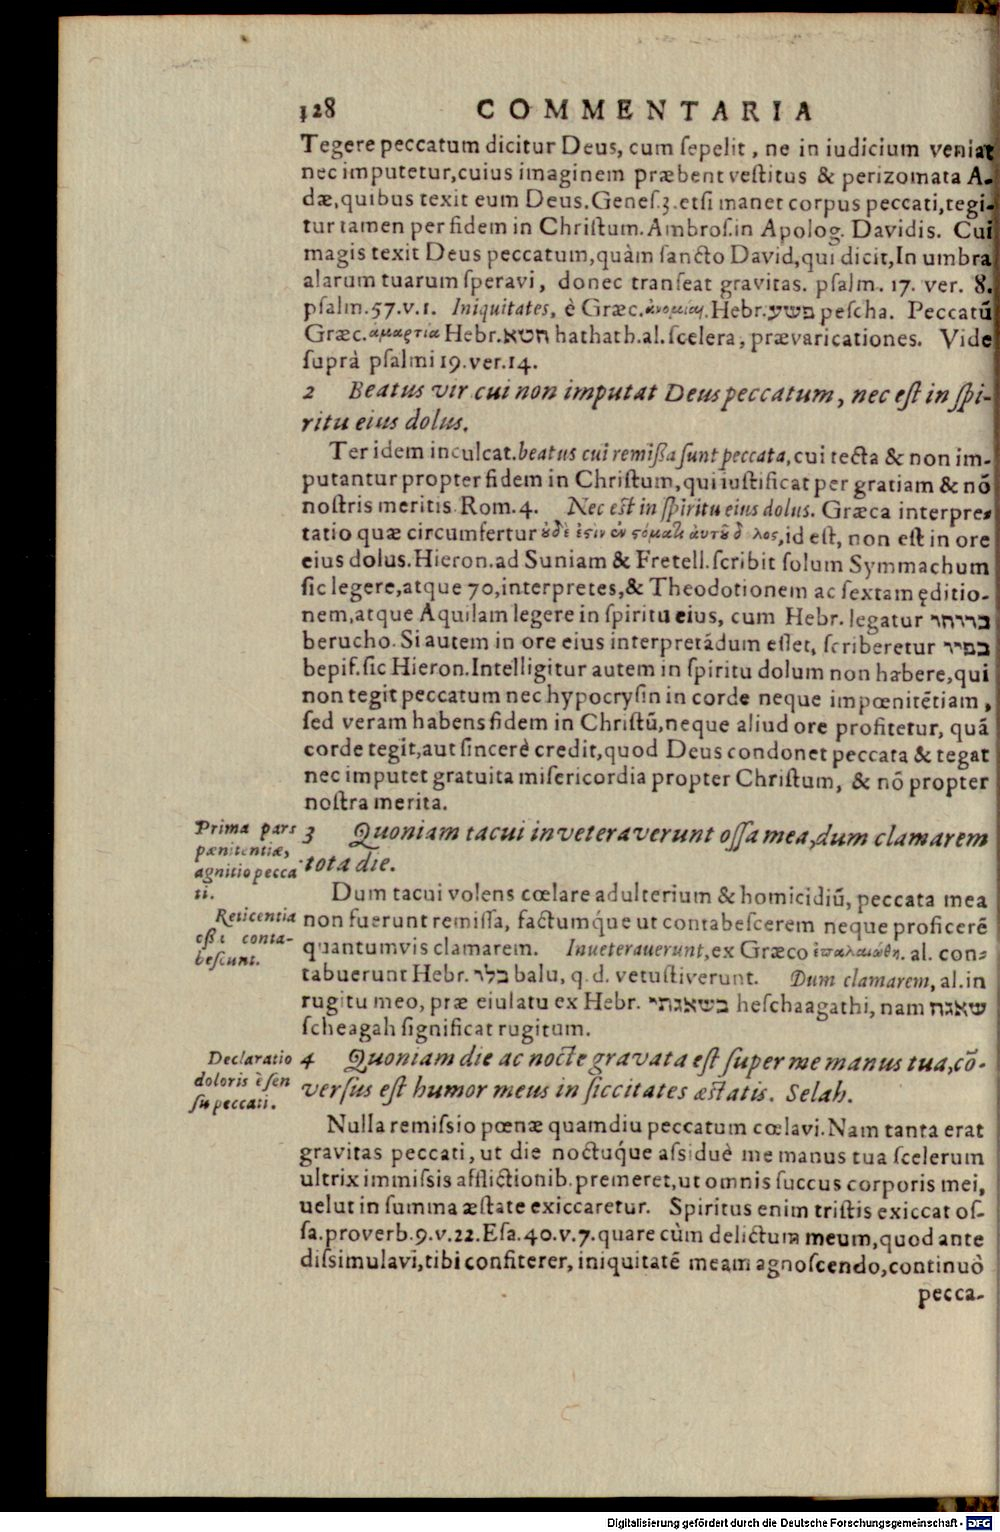 128 COMMENTARIA
Tegere peccatum dicitur Deus, cum ſepelit, ne in iudicium veniat
nec imputetur,cuius imaginem præbent veſtitus & perizomata A-
dæ,quibus texit eum Deus.Geneſ.3.etſi manet corpus peccati,tegi-
tur tamen per fidem in Chriſtum.Ambroſ.in Apolog. Davidis. Cui
magis texit Deus peccatum,quàm ſancto David,qui dicit,In umbra
alarum tuarum ſperavi, donec tranſeat gravitas. pſalm. 17. ver. 8.
pſalm.57.v.1. Iniquitates, è Græc.ἀνομίαι.Hebr.פשע peſcha. Peccatū
Græc.ἁμαρτία Hebr.חטא hathath.al.ſcelera, prævaricationes. Vide
ſuprà pſalmi 19.ver.14.
2 Beatus vir cui non imputat Deus peccatum, nec eſt in ſpi-
ritu eius dolus.
Ter idem inculcat.beatus cui remißa ſunt peccata,cui tecta & non im-
putantur propter fidem in Chriſtum,qui iuſtificat per gratiam & nō
noſtris meritis Rom.4. Nec eſt in ſpiritu eius dolus. Græca interpre-
tatio quæ circumfertur id eſt, non eſt in ore
eius dolus.Hieron.ad Suniam & Fretell.ſcribit ſolum Symmachum
ſic legere,atque 70,interpretes,& Theodotionem ac ſextam ęditio-
nem,atque Aquilam legere in ſpiritu eius, cum Hebr. legatur ברוחו
berucho. Si autem in ore eius interpretādum eſſet, ſcriberetur בפיו
bepif.ſic Hieron.Intelligitur autem in ſpiritu dolum non habere,qui
non tegit peccatum nec hypocryſin in corde neque impœnitētiam,
ſed veram habens fidem in Chriſtū,neque aliud ore profitetur, quā
corde tegit,aut ſincerè credit,quod Deus condonet peccata & tegat
nec imputet gratuita miſericordia propter Chriſtum, & nō propter
noſtra merita.
Prima pars
pænitentiæ,
agnitio pecca
ti.
3 Quoniam tacui inveteraverunt oſſa mea,dum clamarem
tota die.
Dum tacui volens cœlare adulterium & homicidiū, peccata mea
Reticentia
eſt conta-
beſcunt.
non fuerunt remiſſa, factumq́ue ut contabeſcerem neque proficerē
quantumvis clamarem. Inveterauerunt,ex Græco ἐπαλαιώθη. al. con-
tabuerunt Hebr. בלו balu, q.d. vetuſtiverunt. Dum clamarem, al.in
rugitu meo, præ eiulatu ex Hebr. בשאגתי heſchaagathi, nam שאגה
ſcheagah ſignificat rugitum.
Declaratio
doloris è ſen
ſu peccati.
4 Quoniam die ac nocte gravata eſt ſuper me manus tua,cō-
verſus eſt humor meus in ſiccitates æſtatis. Selah.
Nulla remiſsio pœnæ quamdiu peccatum cœlavi.Nam tanta erat
gravitas peccati, ut die noctuq́ue aſsiduè me manus tua ſcelerum
ultrix immiſsis afflictionib.premeret,ut omnis ſuccus corporis mei,
uelut in ſumma æſtate exiccaretur. Spiritus enim triſtis exiccat oſ-
ſa.proverb.9.v.22.Eſa.40.v.7.quare cùm delictum meum,quod ante
diſsimulavi,tibi confiterer, iniquitatē meam agnoſcendo,continuò
pecca-
Digitalisierung gefördert durch die Deutsche Forschungsgemeinschaft - DFG